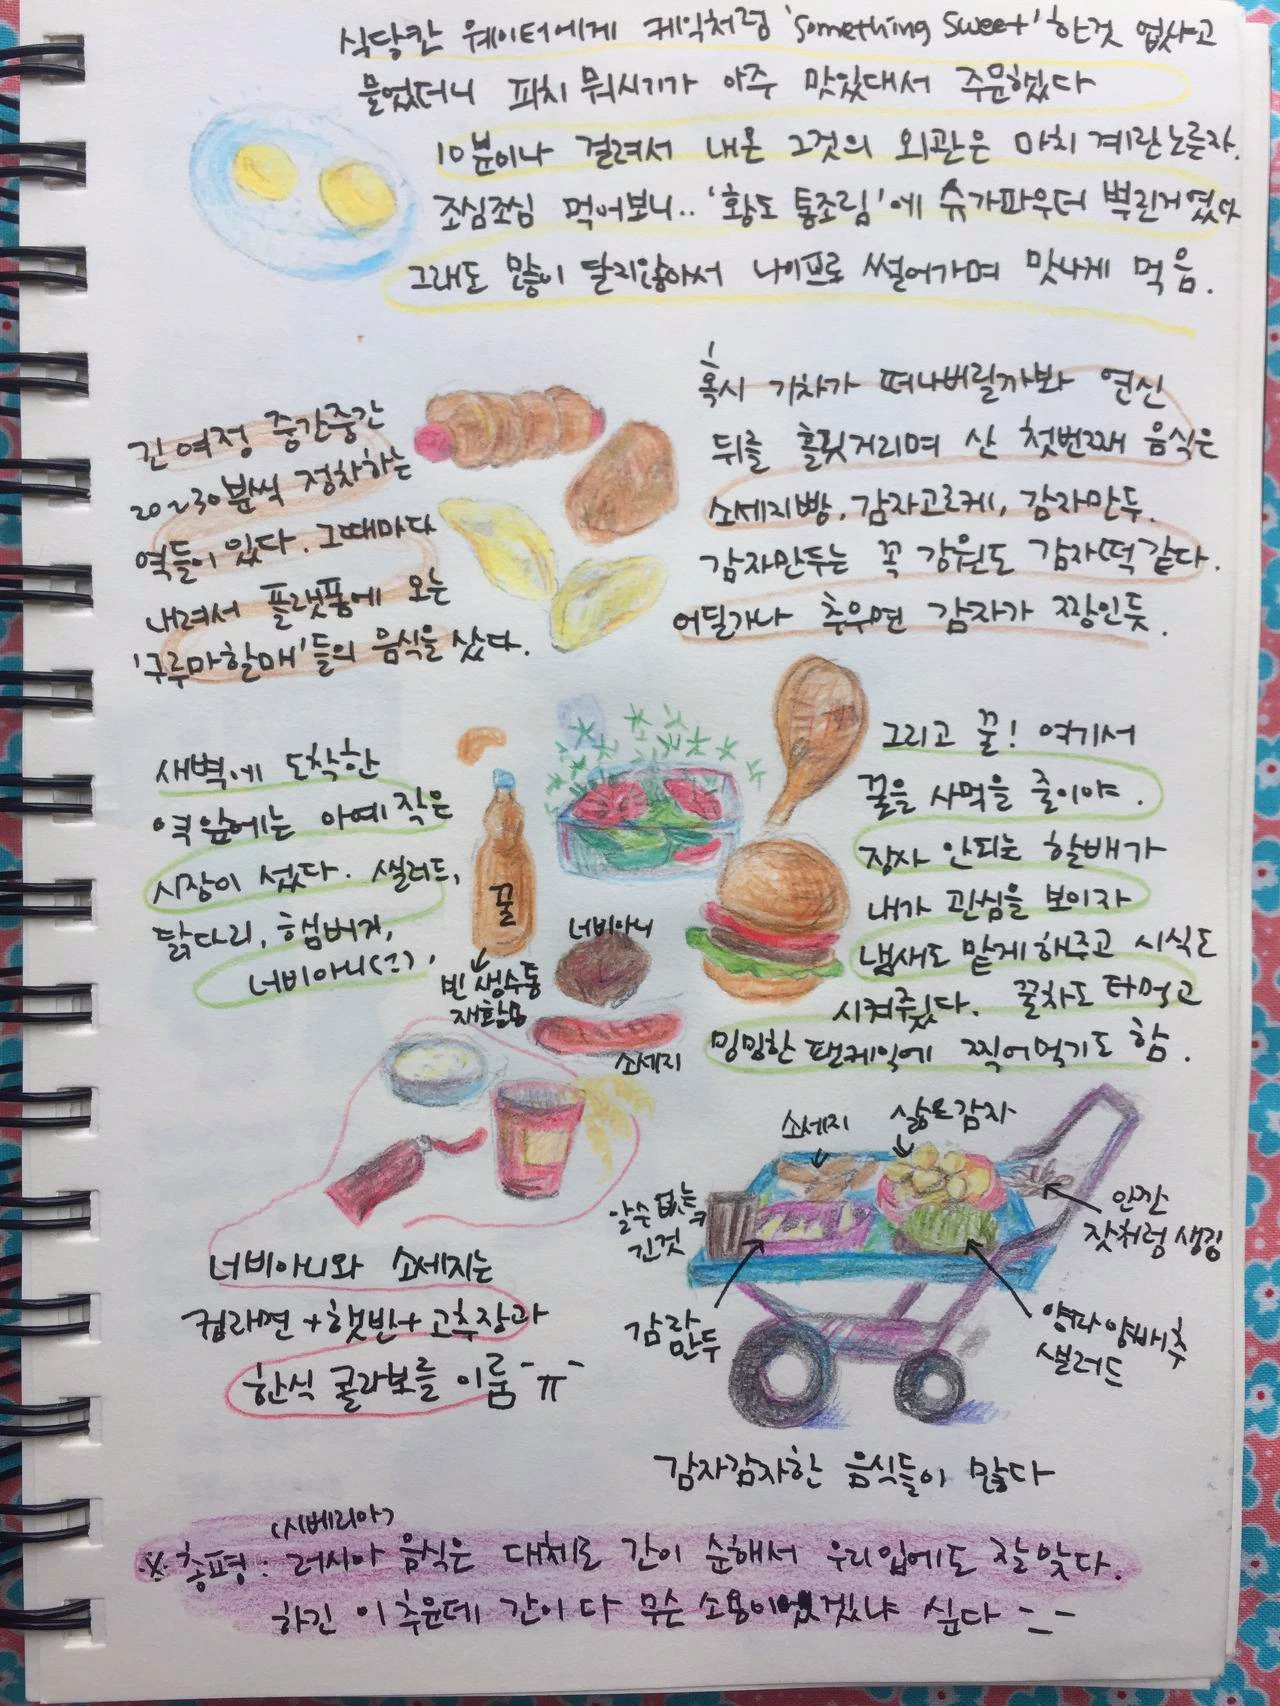 식당칸 웨이터에게 케익처럼 'something sweet'한것 없냐고
물었더니 피치 뭐시기가 아주 맛있대서 주문했다
10분이나 걸려서 내온 그것의 외관은 마치 계란노른자.
조심조심 먹어보니.. '황도 통조림'에 슈가파우더 뿌린거였다
그래도 많이 달지않아서 나이프로 썰어가며 맛나게 먹음.
긴 여정 중간중간
20~30분씩 정차하는
역들이 있다. 그때마다
내려서 플랫폼에 오는
'구루마할매'들의 음식을 샀다.
혹시 기차가 떠나버릴까봐 연신
뒤를 흘깃거리며 산 첫번째 음식은
소세지빵, 감자고로케, 감자만두.
감자만두는 꼭 강원도 감자떡 같다.
어딜가나 추우면 감자가 짱인듯.
새벽에 도착한
역앞에는 아예 작은
시장이 섰다. 샐러드,
닭다리, 햄버거,
너비아니(?).
꿀
빈 생수통
재활용
너비아니
소세지
그리고 꿀! 여기서
꿀을 사먹을 줄이야.
장사 안되는 할배가
내가 관심을 보이자
냄새도 맡게 해주고 시식도
시켜주었다. 꿀차도 타먹고
밍밍한 팬케익에 찍어먹기도 함.
너비아니와 소세지는
컵라면+햇반+고추장과
한식 콜라보를 이룸 ㅠ
소세지
삶은감자
알수없는
긴것
감자
만두
안깐
잣처럼 생김
양파양배추
샐러드
감자감자한 음식들이 많다
(시베리아)
※총평: 러시아 음식은 대체로 간이 순해서 우리입에도 잘맞다.
하긴 이 추운데 간이 다 무슨 소용이었겠냐 싶다 -_-